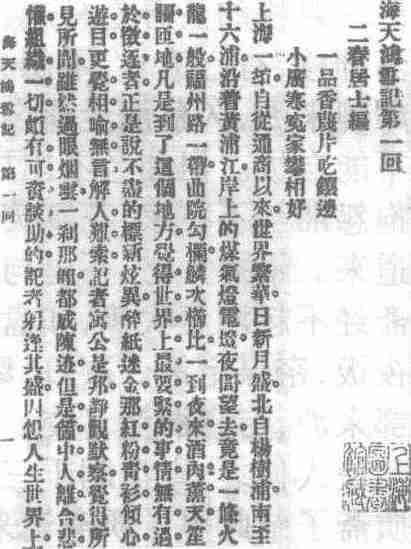 海天鴻雪記第一回
二春居士編
一品香鴉片吃鑲邊
小廣寒冤家攀相好
上海一埠自從通商以來世界繁華日新月盛北自楊樹浦南至
十六浦沿着黃浦江岸上的煤氣燈電燈夜間望去竟是一條火
龍一般福州路一帶曲院勾欄鱗次櫛比一到夜來酒肉薰天笙
謌匝地凡是到了這個地方覺得世界上最要緊的事情無有過
於徵逐者正是說不盡的標新炫異醉紙迷金那紅粉青衫傾心
遊目更覺相喻無言解人難索記者寓公是邦靜觀默察覺得所
見所聞雖然過眼烟雲一剎那頃都成陳迹但是箇中人離合悲
懽組織一切頗有可資談助的記者躬逢其盛因想人生世界上
海天鴻雪記 第一回 一